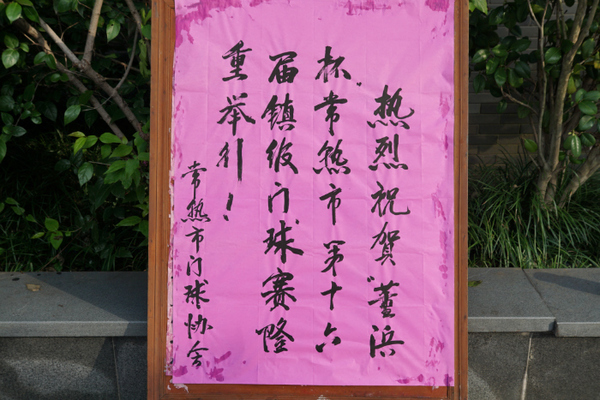 热烈祝贺“董浜
杯”常熟市第十六
届镇级门球赛隆
重举行！
常熟市门球协会